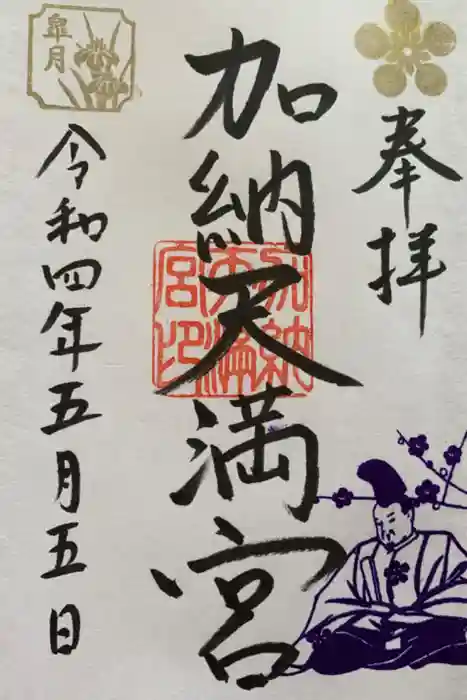 奉拝
加納天満宮
加納天満宮印
皐月
令和四年五月五日